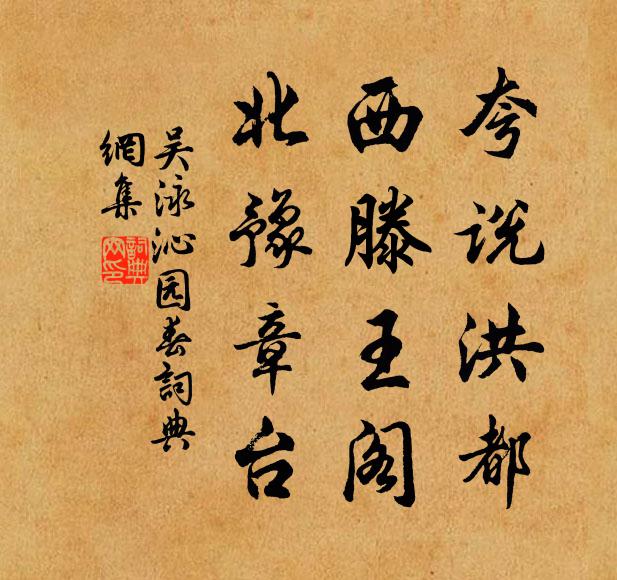 夸说洪都
西滕王阁
北豫章台
吴泳沁园春詞典
網集
詞典
网印